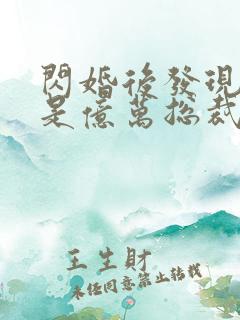 閃婚後發現
是億萬總裁
王生財
未任同意禁止轉載